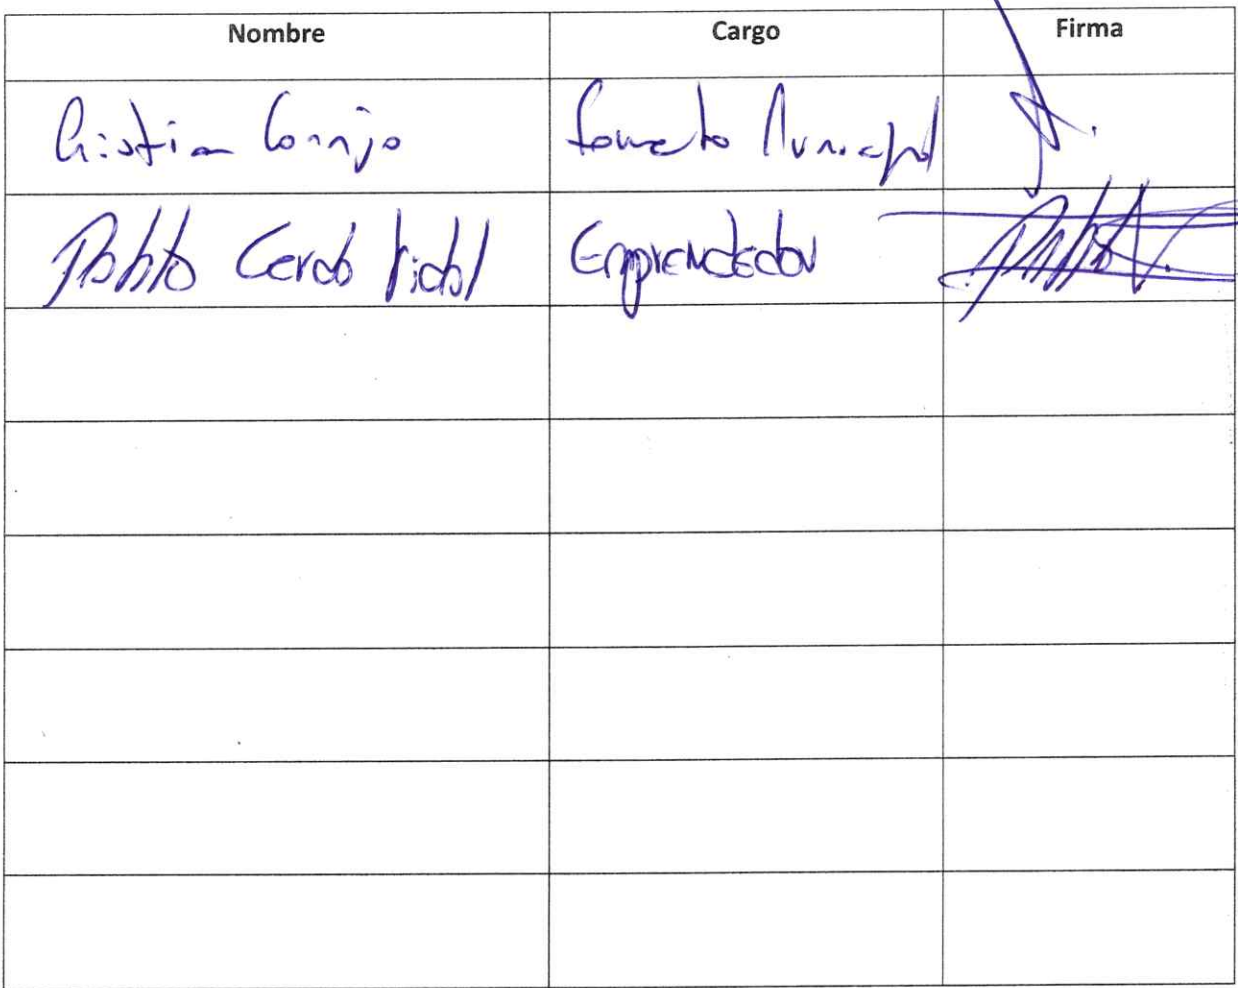 Nombre Cargo Firma
Cristian Cornejo Fomento Municipal
Pablo Cerda Vidal Emprendedor